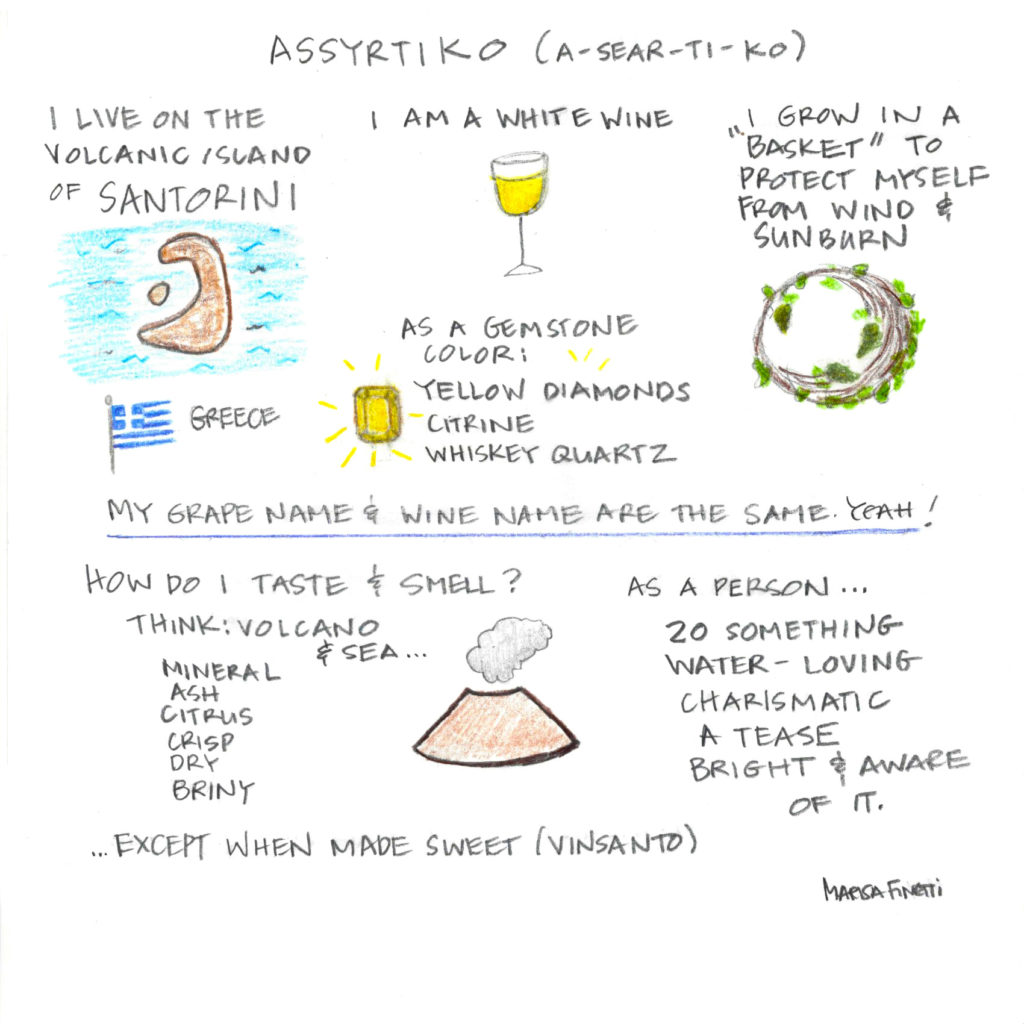 ASSYRTIKO (A-SEAR-TI-KO)
I LIVE ON THE
VOLCANIC ISLAND
OF SANTORINI
GREECE
I AM A WHITE WINE
AS A GEMSTONE
COLOR:
YELLOW DIAMONDS
CITRINE
WHISKEY QUARTZ
"I GROW IN A
"BASKET" TO
PROTECT MYSELF
FROM WIND &
SUNBURN
MY GRAPE NAME & WINE NAME ARE THE SAME. YEAH!
HOW DO I TASTE & SMELL?
THINK: VOLCANO
& SEA...
MINERAL
ASH
CITRUS
CRISP
DRY
BRINY
...EXCEPT WHEN MADE SWEET (VINSANTO)
AS A PERSON...
20 SOMETHING
WATER-LOVING
CHARISMATIC
A TEASE
BRIGHT & AWARE
OF IT.
MARISA FINETTI